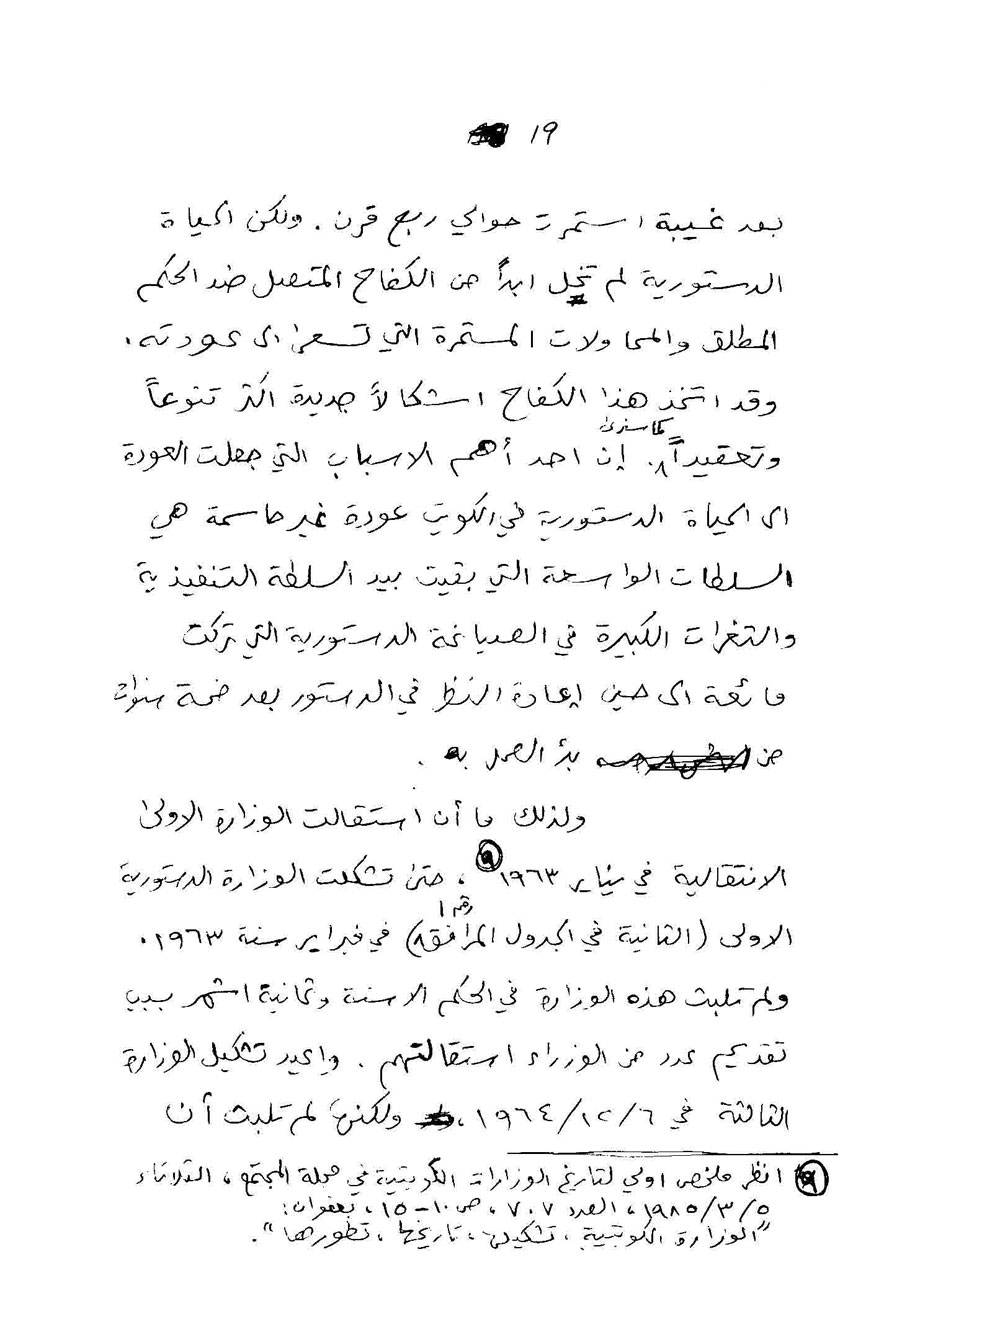 ١٩
بعد غيبة استمرت حوالي ربع قرن. ولكن الحياة
الدستورية لم تخل ابداً من الكفاح المتصل ضد الحكم
المطلق والمحاولات المستمرة التي تسعى الى عودته.
وقد اتخذ هذا الكفاح اشكالاً جديدة اكثر تنوعاً
كما سنرى
وتعقيداً. إن احد أهم الاسباب التي جعلت العودة
الى الحياة الدستورية في الكويت عودة غير حاسمة هي
السلطات الواسعة التي بقيت بيد السلطة التنفيذية
والثغرات الكبيرة في الصياغة الدستورية التي تركت
مائعة الى حين إعادة النظر في الدستور بعد خمسة سنوات
من بدأ العمل به.
ولذلك ما أن استقالت الوزارة الاولى
الانتقالية في يناير ١٩٦٣ (٩)، حتى تشكلت الوزارة الدستورية
رقم ١
الاولى (الثانية في الجدول المرافق) في فبراير سنة ١٩٦٣.
ولم تلبث هذه الوزارة في الحكم الا سنة وثمانية اشهر بسبب
تقديم عدد من الوزراء استقالتهم. واعيد تشكيل الوزارة
الثالثة في ١٩٦٤/١٢/٦، ولكنها لم تلبث أن
(٩) انظر ملخص اولي لتاريخ الوزارات الكويتية في مجلة المجتمع، الثلاثاء
١٩٨٥/٣/٥، العدد ٧٠٧، ص ١٠-١٥، بعنوان:
"الوزارة الكويتية، تشكيلها، تاريخها، تطورها".